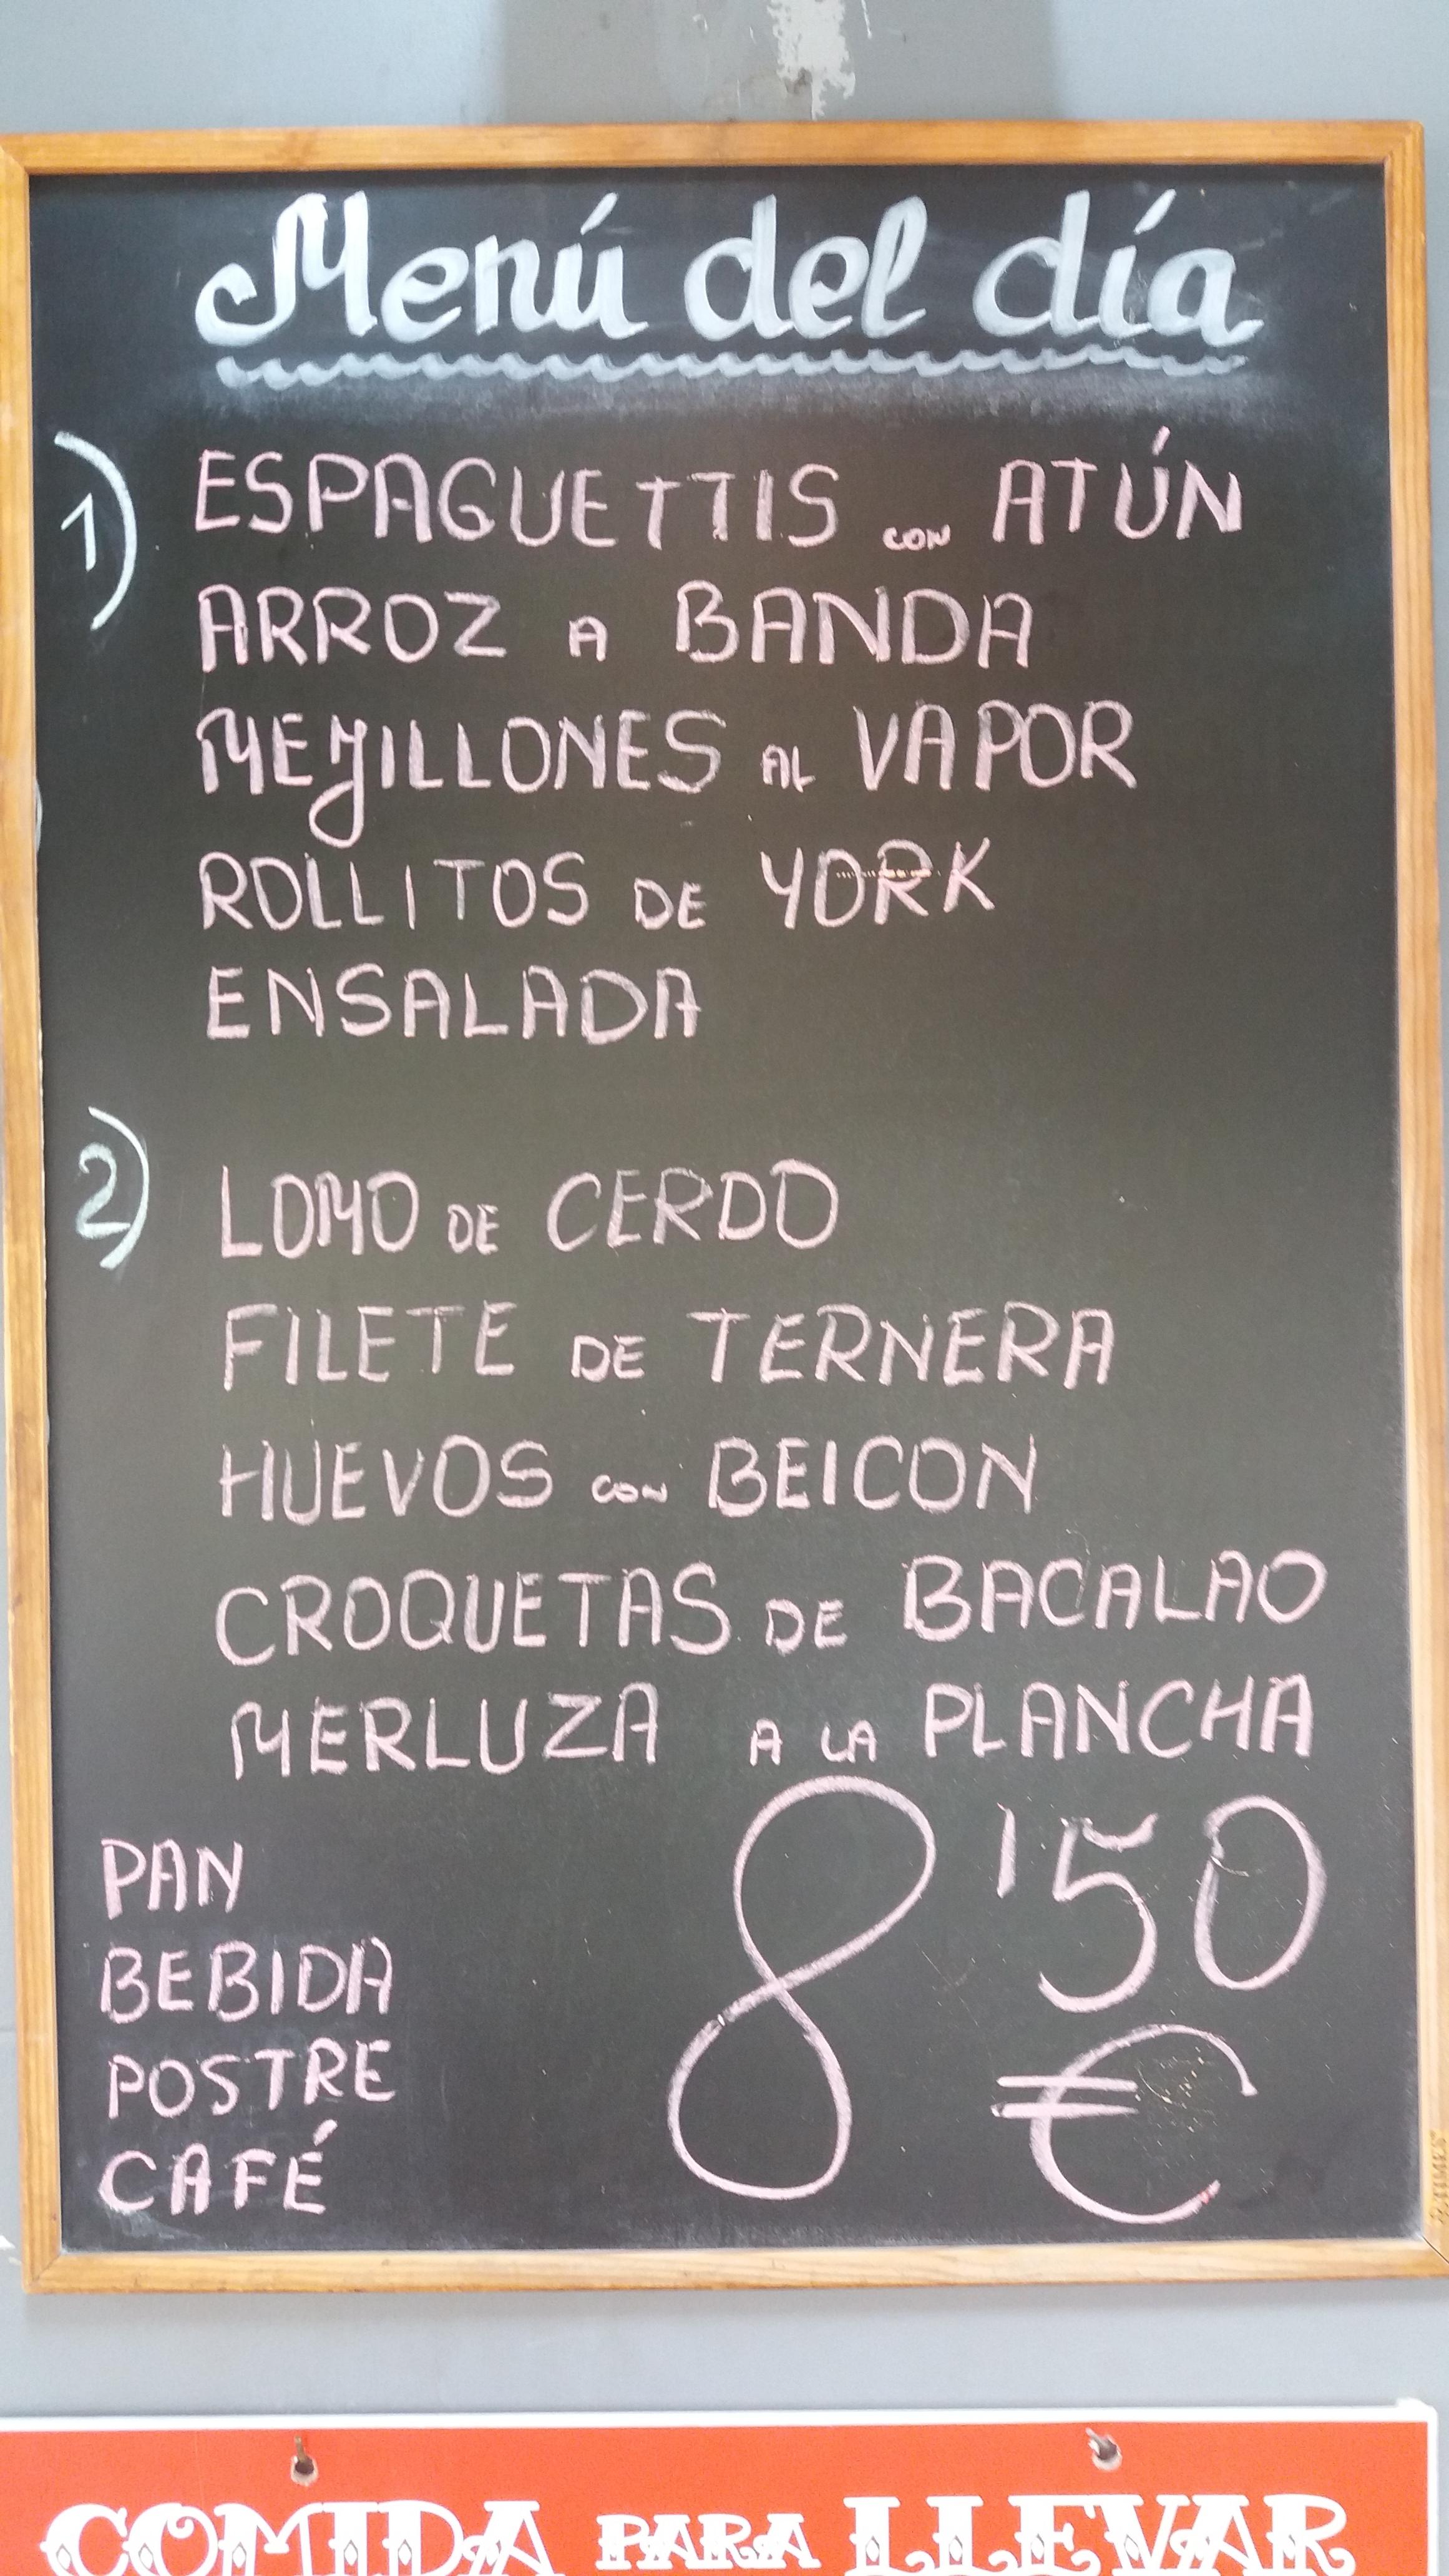 Menú del día
1) ESPAGUETTIS con ATÚN
ARROZ A BANDA
MEJILLONES AL VAPOR
ROLLITOS DE YORK
ENSALADA
2) LOMO DE CERDO
FILETE DE TERNERA
HUEVOS con BEICON
CROQUETAS DE BACALAO
MERLUZA A LA PLANCHA
PAN
BEBIDA
POSTRE
CAFÉ
8'50
€
COMIDA PARA LLEVAR